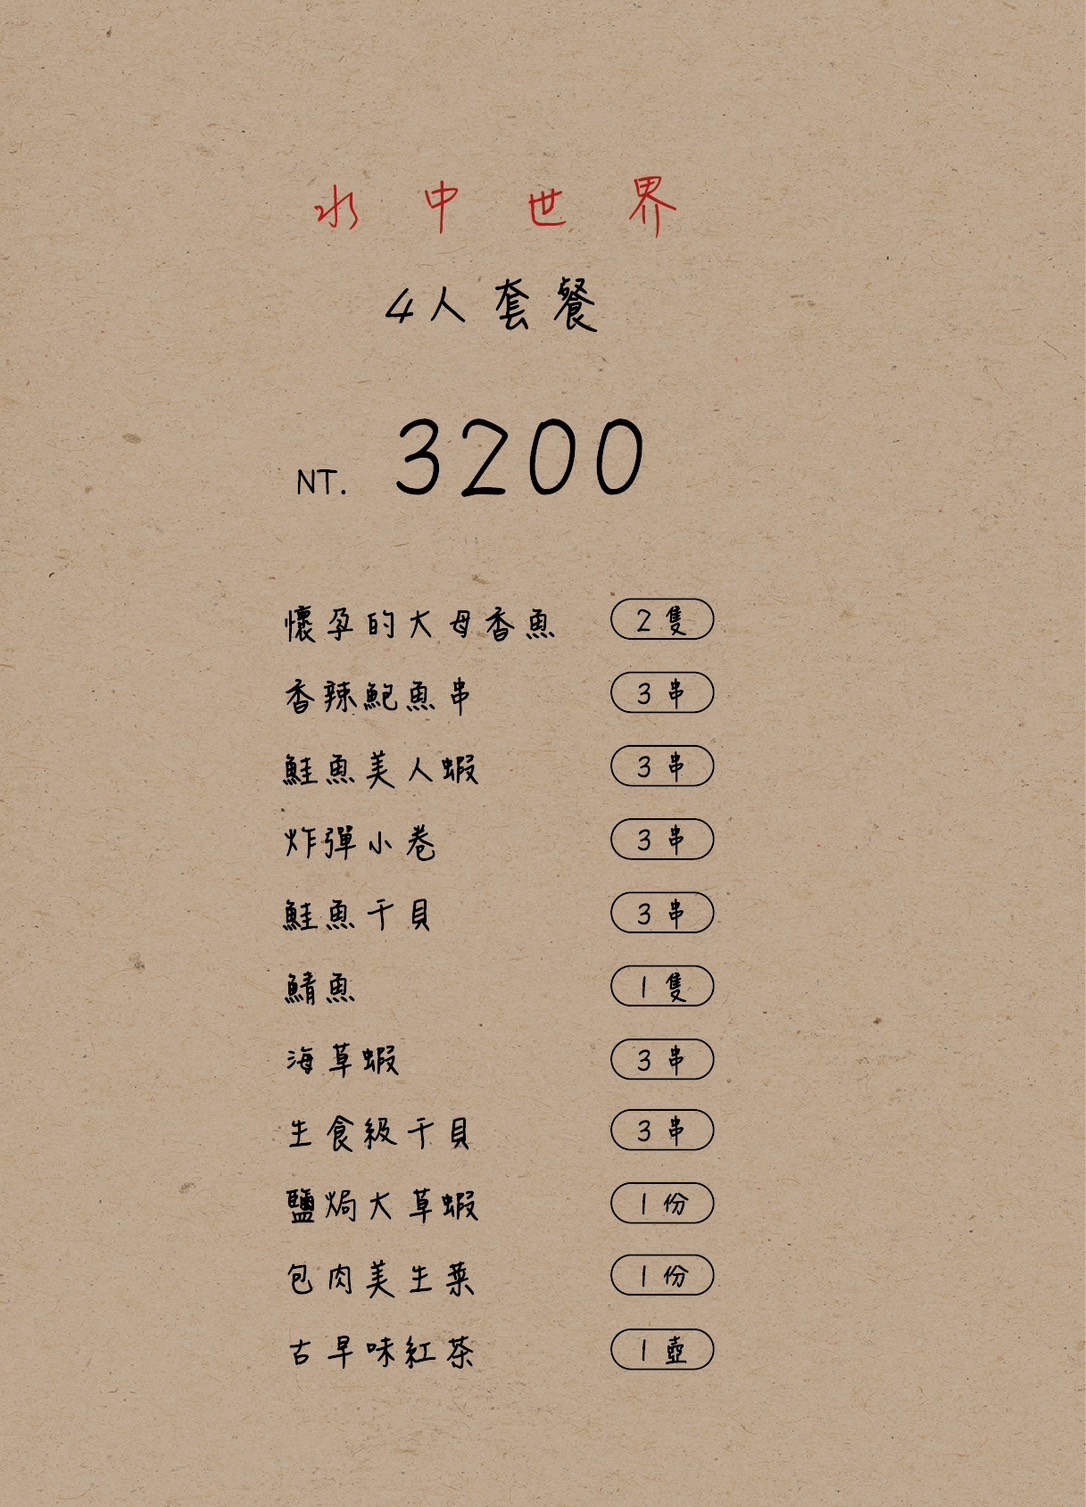 水中世界
4人套餐
NT. 3200
懷孕的大母香魚 2隻
香辣鮑魚串 3串
鮭魚美人蝦 3串
炸彈小卷 3串
鮭魚干貝 3串
鯖魚 1隻
海草蝦 3串
生食級干貝 3串
鹽焗大草蝦 1份
包肉美生菜 1份
古早味紅茶 1壺